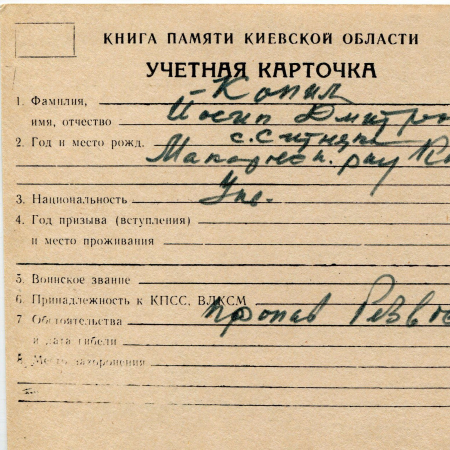 КНИГА ПАМЯТИ КИЕВСКОЙ ОБЛАСТИ
УЧЕТНАЯ КАРТОЧКА
1. Фамилия, Копил
имя, отчество Йосип Дмитро
2. Год и место рожд. с. Ситняки
Макарівськ. р-ну
3. Национальность Укр.
4. Год призыва (вступления)
и место проживания
5. Воинское звание
6. Принадлежность к КПСС, ВЛКСМ
7 Обстоятельства пропав
и дата гибели
8. Место захоронения